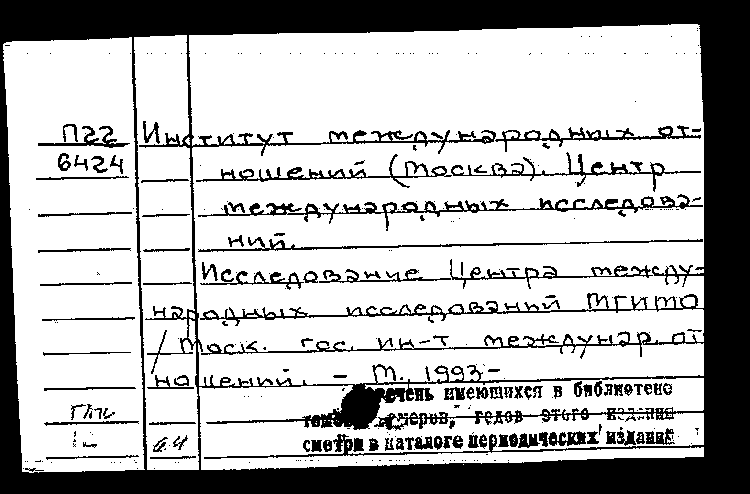 П22 Институт международных от-
6424 ношений (Москва). Центр
международных исследова-
ний.
Исследование Центра между-
народных исследований МГИМО
/ Моск. гос. ин-т междунар. от
ношений. – М., 1993-
Перечень имеющихся в библиотеке
томов, номеров, годов этого издания
смотри в каталоге периодических изданий